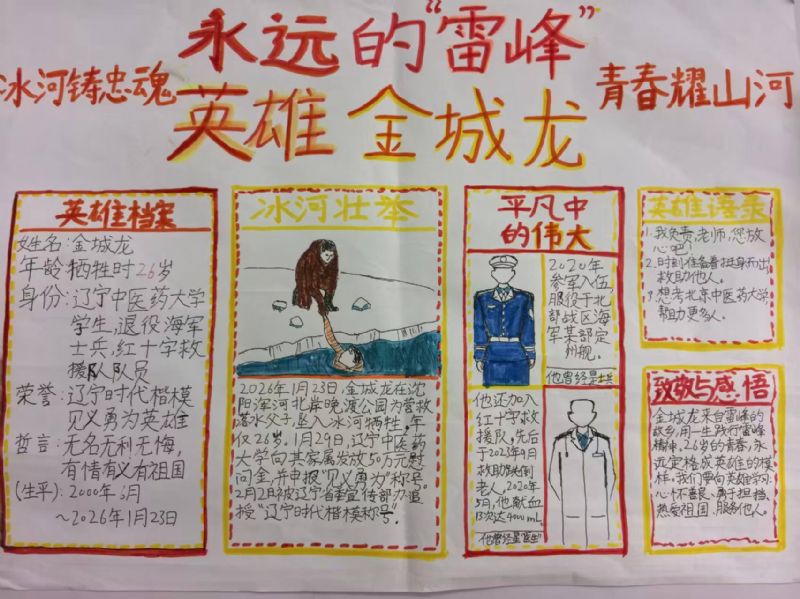 永远的"雷峰"
冰河铸忠魂
英雄 金城龙
青春耀山河
英雄档案
姓名:金城龙
年龄 牺牲时26岁
身份:辽宁中医药大学
学生,退役海军
士兵,红十字救
援队队员
荣誉:辽宁时代楷模
见义勇为英雄
哲言:无名无利无悔,
有情有义有祖国
(生平):2000年6月
~2026年1月23日
冰河壮举
2026年1月23日,金城龙在沈
阳浑河北岸晚渡公园为营救
落水父子,坠入冰河牺牲,年
仅26岁。1月29日,辽宁中医药
大学向其家属发放50万元慰
问金,并申报"见义勇为"称号。
2月2日被辽宁省委宣传部力追
授"辽宁时代楷模称号"。
平凡中
的伟大
2020年
参军入伍,
服役于北
部战区海
军某部定
州舰。
他曾经是士兵
他还加入
红十字救
援队,先后
于2023年9月
救助跌倒
老人,2020年
5月,他献血
13次达4000mL。
他曾经是"医生"
英雄语录
1.我负责,老师,您放
心吧!
2.时刻准备着挺身而出
救助他人。
3.想考北京中医药大学,
帮助更多人。
致敬与感悟
金城龙来自雷峰的
故乡,用一生践行雷峰
精神。26岁的青春,永
远定格成英雄的模
样。我们要向英雄学习:
心怀善良、勇于担当、
热爱祖国、服务他人。